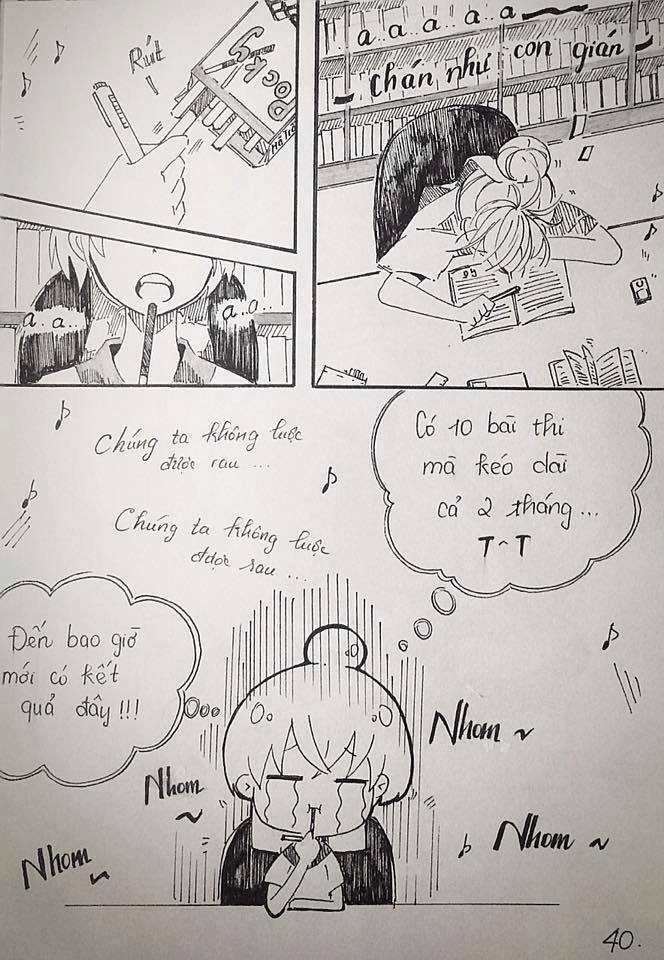 Rút
POCKY
a a a a..a
chán như con gián
a..a..
a..a..
Chúng ta không luộc
được rau ...
Chúng ta không luộc
được rau ...
Có 10 bài thi
mà kéo dài
cả 2 tháng...
T^T
Đến bao giờ
mới có kết
quả đây!!!
Nhom ~
Nhom
~
Nhom ~
Nhom ~
40.